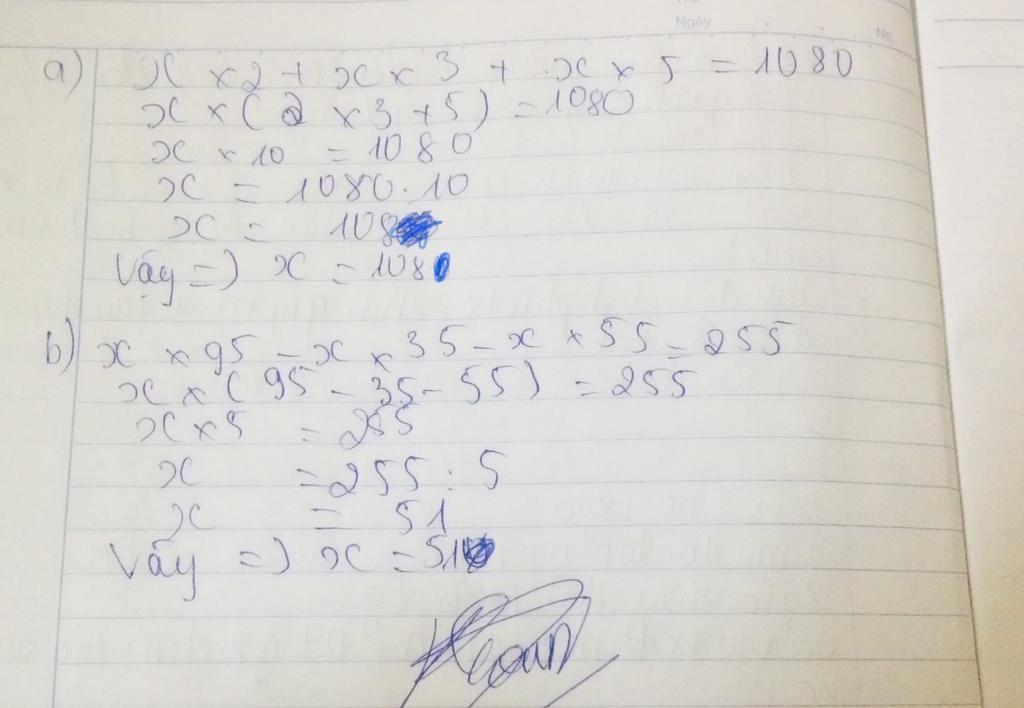 Ngày
No.
a) x × 2 + x × 3 + x × 5 = 1080
x × ( 2 × 3 + 5 ) = 1080
x × 10 = 1080
x = 1080 . 10
x = 108
Vây => x = 108
b) x × 95 - x × 35 - x × 55 = 255
x × ( 95 - 35 - 55 ) = 255
x × 5 = 255
x = 255 : 5
x = 51
Vây => x = 51